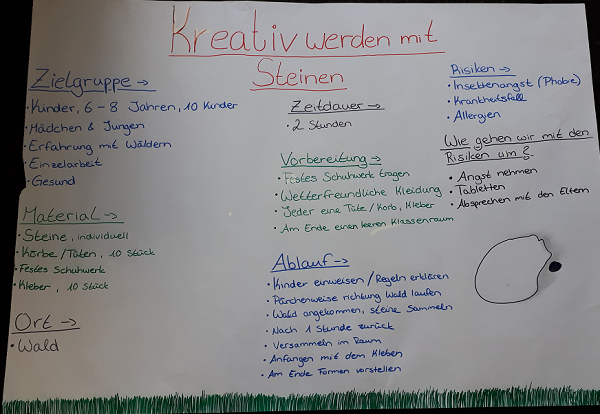 Kreativ werden mit
Steinen
Zielgruppe →
• Kinder, 6 - 8 Jahren, 10 Kinder
• Mädchen & Jungen
• Erfahrung mit Wäldern
• Einzelarbeit
• Gesund
Material →
• Steine, individuell
• Körbe/Tüten, 10 Stück
• Festes Schuhwerk
• Kleber, 10 Stück
Ort →
• Wald
Zeitdauer →
• 2 Stunden
Vorbereitung →
• Festes Schuhwerk tragen
• Wetterfreundliche Kleidung
• Jeder eine Tüte/Korb, Kleber
• Am Ende einen leeren Klassenraum
Ablauf →
• Kinder einweisen/Regeln erklären
• Pärchenweise richtung Wald laufen
• Wald angekommen, steine Sammeln
• Nach 1 Stunde zurück
• Versammeln im Raum
• Anfangen mit dem Kleben
• Am Ende Formen vorstellen
Risiken →
• Insektenangst (Phobie)
• Krankheitsfall
• Allergien
Wie gehen wir mit den
Risiken um?
• Angst nehmen
• Tabletten
• Absprechen mit den Eltern